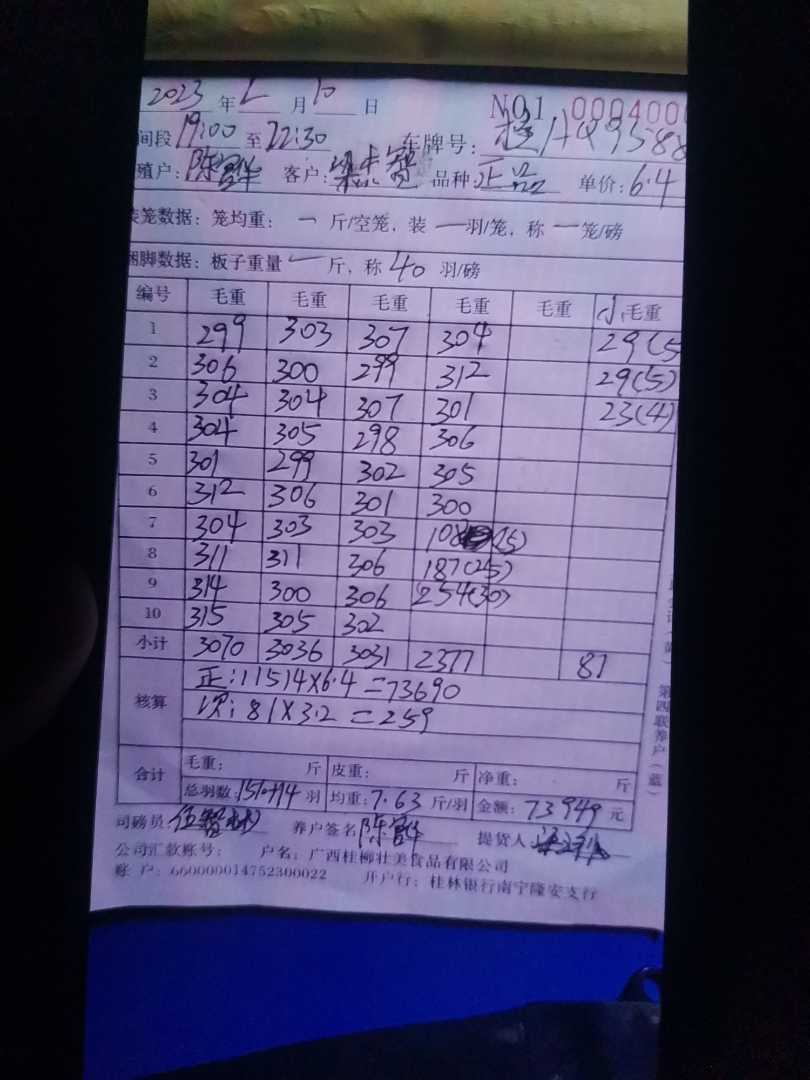 2023年2月10日 NO1 0004000
间段19:00至22:30 车牌号:桂A Q9588
殖户:陈 客户:梁志智 品种 正品 单价:6.4
装笼数据:笼均重:一斤/空笼,装一羽/笼,称一笼/磅
捆脚数据:板子重量一斤,称40羽/磅
编号 毛重 毛重 毛重 毛重 毛重 小毛重
1 299 303 307 304 29(5
2 306 300 299 312 29(5)
3 304 304 307 301 23(4)
4 304 305 298 306
5 301 299 302 305
6 312 306 301 300
7 304 303 303 108 (15)
8 311 311 306 187(25)
9 314 300 306 254(30)
10 315 305 302
小计 3070 3036 3031 2377 81
核算 正:11514×6.4=73690
次:81×3.2=259
合计 毛重: 斤 皮重: 斤 净重: 斤
总羽数:1510+14羽 均重:7.63斤/羽 金额:73949元
司磅员:伍 养户签名 陈 提货人
公司汇款账号: 户名:广西桂柳壮美食品有限公司
账 户:660000014752300022 开户行:桂林银行南宁隆安支行
第四联养户(蓝)